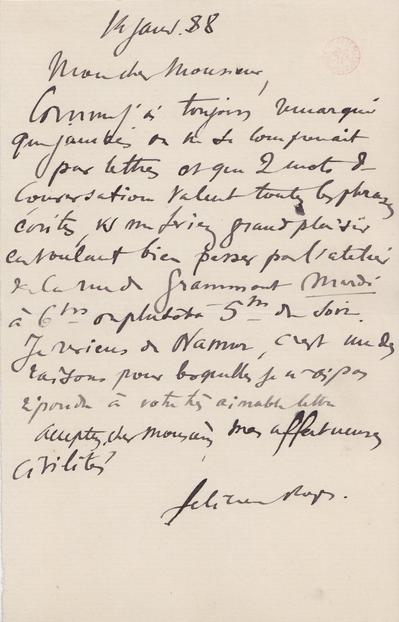 14 Janv. 88
Mon cher Monsieur,
Comme j'ai toujours remarqué
que jamais on ne se comprenait
par lettres et que 2 mots de
Conversation valent toutes les phrases
écrites, vs me feriez grand plaisir
en voulant bien passer par l'atelier
de la rue de Grammont Mardi
à 6 hrs ou plutôt à 5 hrs du Soir.
Je reviens de Namur, c'est une des
raisons pour lesquelles je n'ai pas
répondu à votre très aimable lettre
Acceptez, cher Monsieur, mes affectueuses
civilités
Félicien Rops.